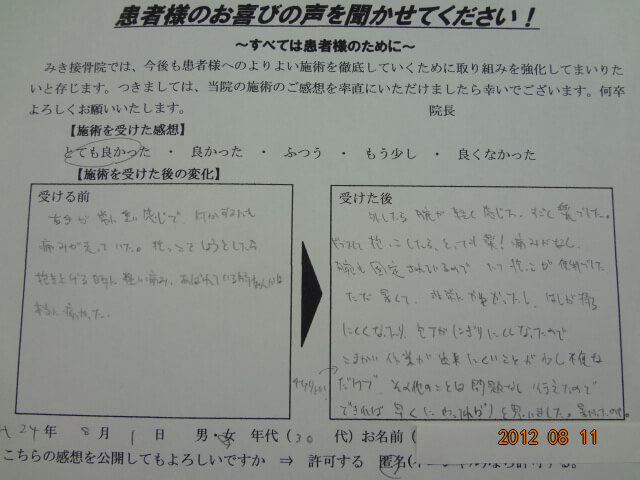 患者様のお喜びの声を聞かせてください！
～すべては患者様のために～
みき接骨院では、今後も患者様へのよりよい施術を徹底していくために取り組みを強化してまいりた
いと存じます。つきましては、当院の施術のご感想を率直にいただけましたら幸いでございます。何卒
よろしくお願いいたします。 院長
【施術を受けた感想】
とても良かった ・ 良かった ・ ふつう ・ もう少し ・ 良くなかった
【施術を受けた後の変化】
受ける前
右手が 常に 重い感じで、何かするにも
痛みが走っていた。抱っこしようとしたら
抱き上げる時 軽い痛み、あばれている
本当に痛かった。
受けた後
したら 腕が軽く感じた。すごく楽でした。
抱っこしても、とっても楽！痛みがなし。
腕も固定されているので 抱っこが
ただ暑くて、 はしが持ち
にくくなったり 包丁がにぎりにくくなったので
こまかい作業が出来にくいことが少し不便な
だけで、その他のことは問題なし 行えたので
できれば早く と思いました。
24年 8月 1日 男・女 年代（30 代）お名前（
2012 08 11
こちらの感想を公開してもよろしいですか ⇒ 許可する 匿名(イニシャル)なら許可する。